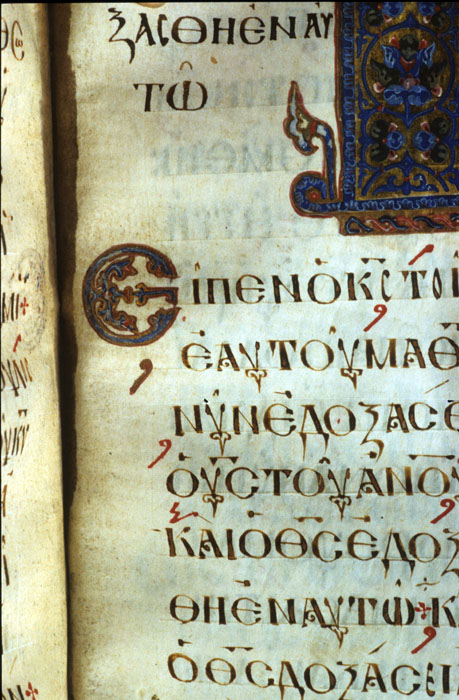 ξασθηεναυ
τω
Ειπενοκςτοι
εαυτουμαθ
νυνεδοξασε
ουςτουανου
καιοθσεδοξ
θηεναυτωκ
οθσδοξασει